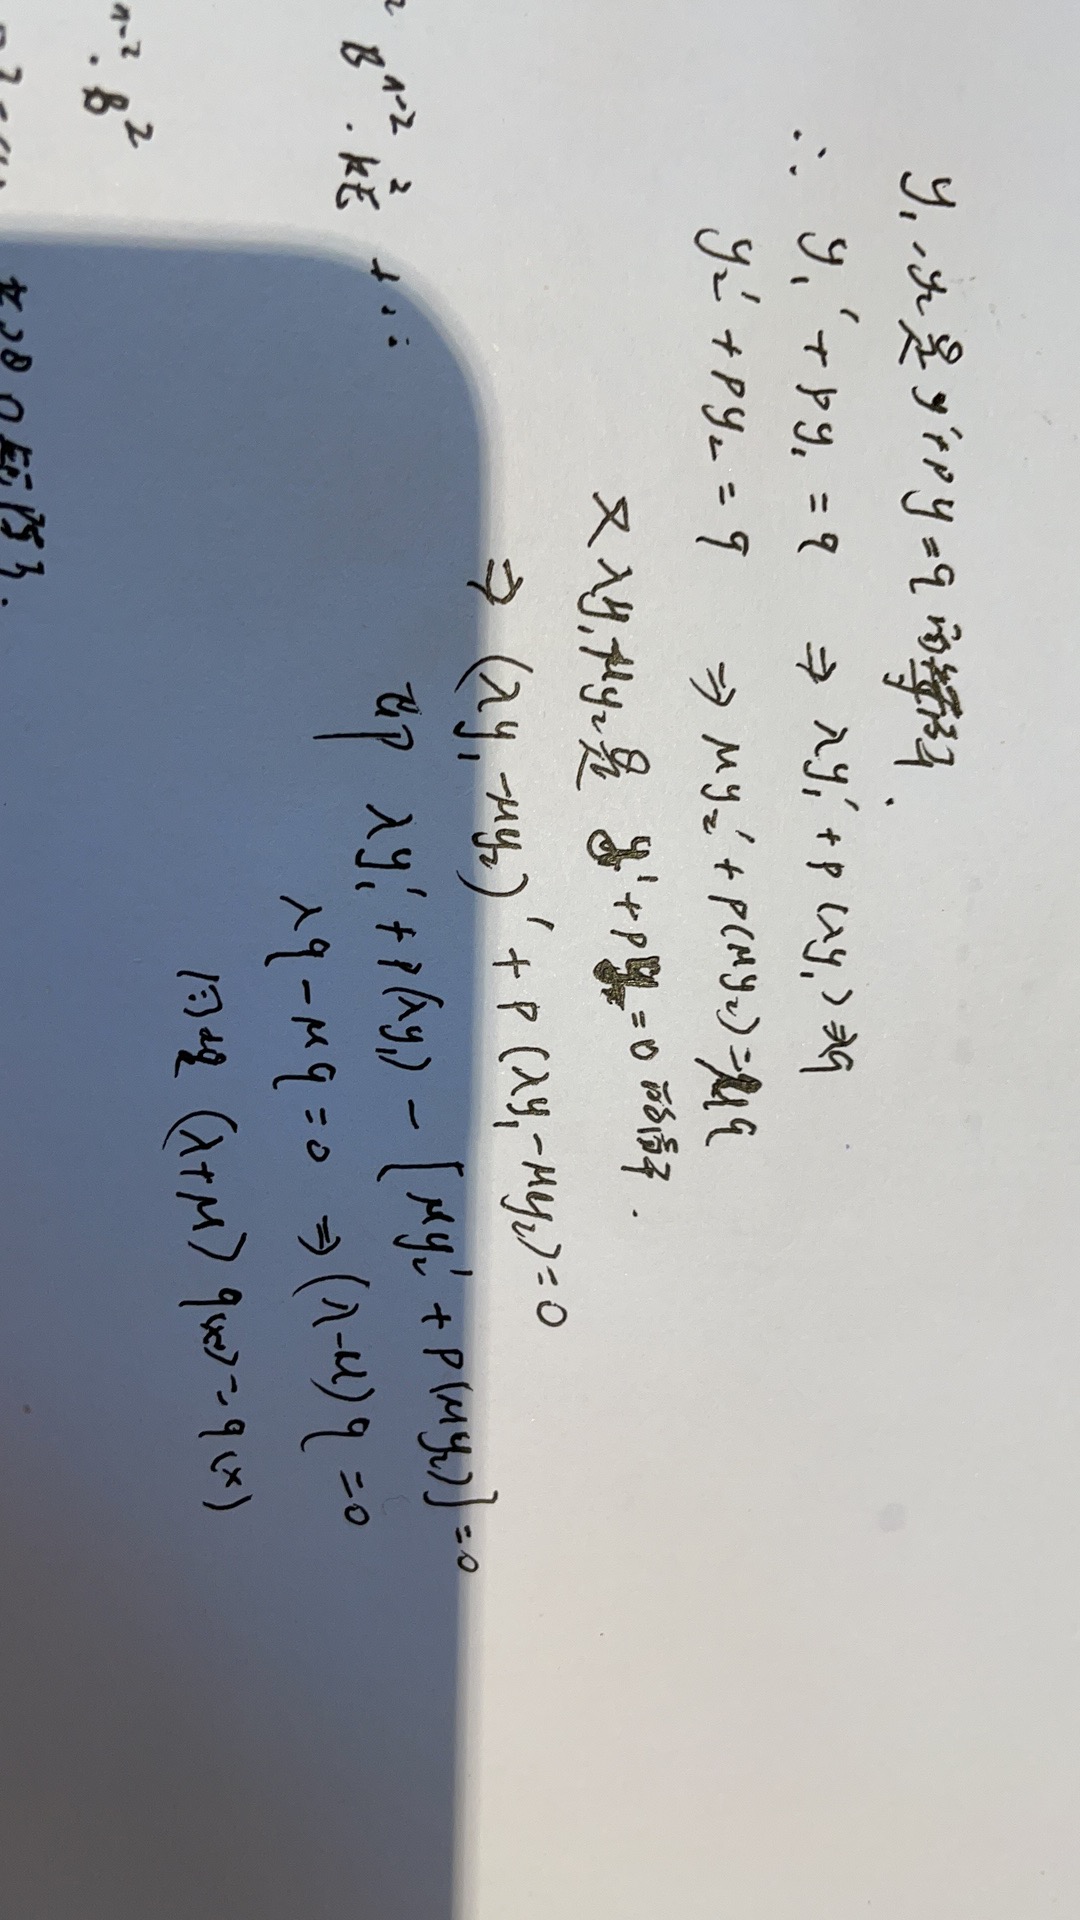 y₁, y₂是 y'+py=q 的特解.
∴ y₁' + py₁ = q ⇒ λy₁' + p(λy₁) = λq
y₂' + py₂ = q ⇒ μy₂' + p(μy₂) = μq
又 λy₁-μy₂是 y'+py=0 的解.
⇒ (λy₁-μy₂)' + p(λy₁-μy₂)=0
即 λy₁' + p(λy₁) - [μy₂' + p(μy₂)]=0
λq-μq=0 ⇒ (λ-μ)q=0
同理 (λ+μ) q(x)=q(x)
B^{n-2} · kE² + ...
n-2 · B²